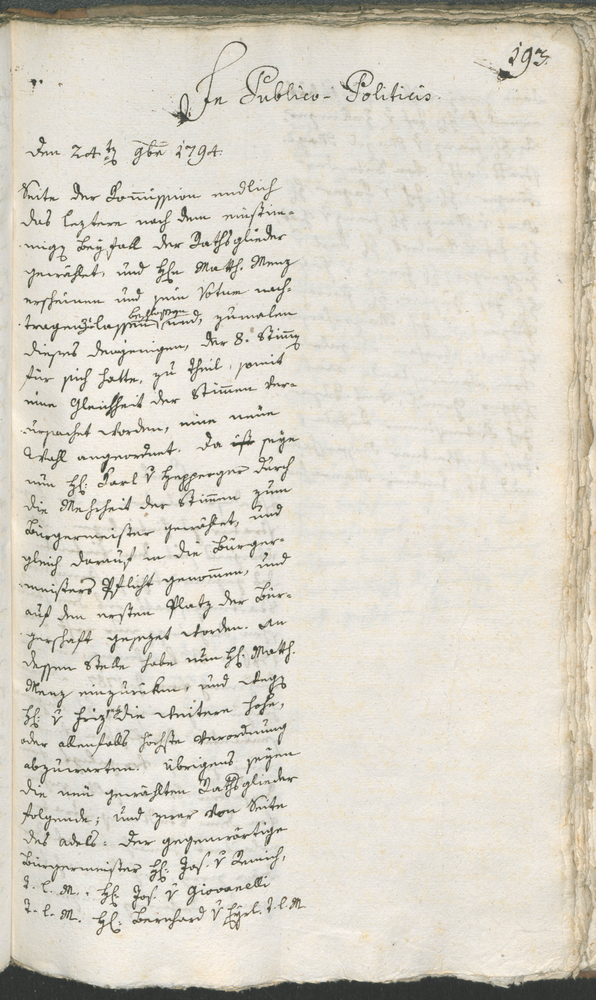 193.
In Publico-Politicis.
den 24.t 9bris 1794.
Seite der Kommission endlich
das leztere nach dem einstim-
migen Beyfall der Rathsglieder
gewählt, und Hrn Math. Menz
erscheinen und sein Votum nach-
beschlossen
tragen zulassen und, zumalen
dieses demjenigen, der 8. Stimmen
für sich hatte, zu Theil, somit
eine Gleichheit der Stimmen ver-
ursachet worden, eine neue
Wahl angeordnet. Da ist seye
nun H: Karl v Hepperger durch
die Mehrheit der Stimmen zum
Bürgermeister gewählt, und
gleich darauf in die Bürger-
meisters Pflicht genommen, und
auf den ersten Platz der Bür-
gerschaft gesezet worden. An
dessen Stelle habe nun H: Math.
Menz einzurüken, und wegen
H: v Friz die weitere hohe,
oder allenfalls höchste Verordnung
abzuwarten. Übrigens seyen
die neu gewählten Rathsglieder
folgende; und zwar von Seite
des Adels: der gegenwärtige
Bürgermeister H: Jos. v Remich,
T. l. M. H: Jos. v Giovanelli
T. l. M. H: Bernhard v Hyrl. T. l. M.